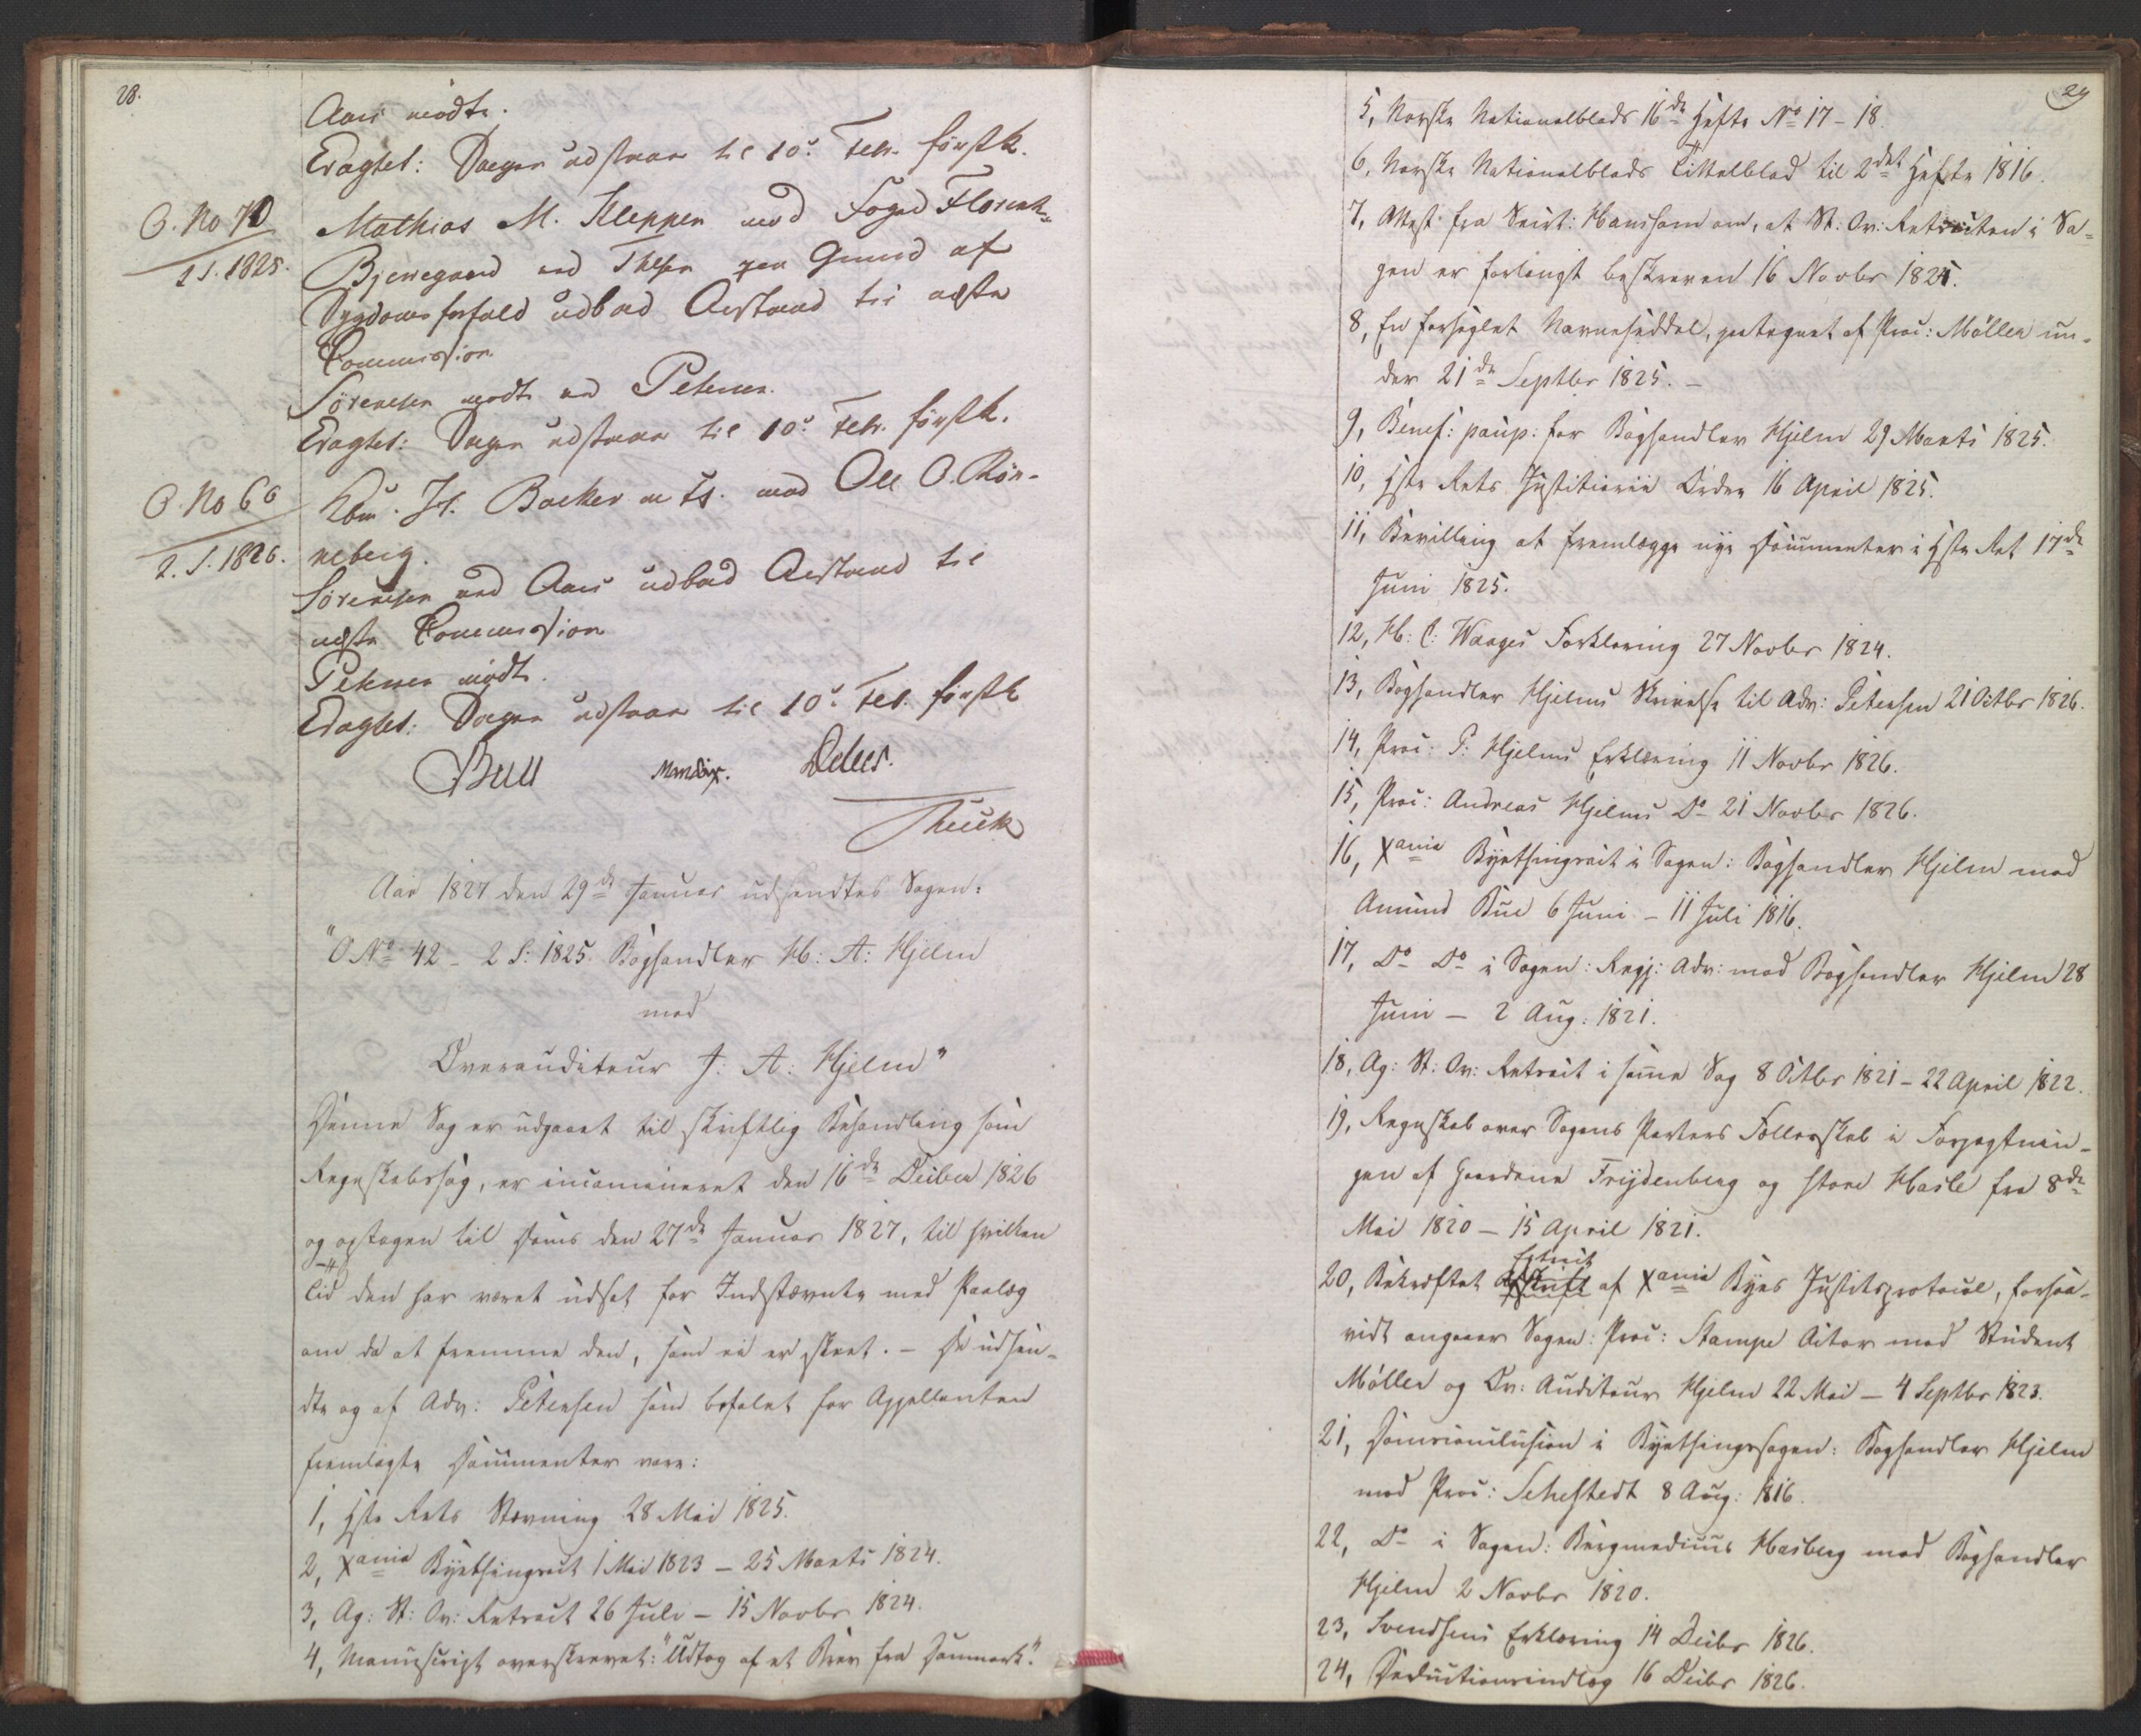 28.
Aars mødte.
Eragtet: Sagen udstaar til 10de Febr. førstk.
O. No 70
2 S. 1825.
Mathias M. Kleppen mod Foged Florentz
Bjerregaard ved Thesen paa Grund af
Sygdomsforfald udbad Anstand til næste
Commission
Sørensen mødte ved Petersen.
Eragtet: Sagen udstaar til 10de Febr. førstk.
O. No 66
2. S. 1826.
Kbm. Js. Backer m fl. mod Ole O. Røn-
neberg.
Sørensen ved Aars udbad Anstand til
næste Commission
Petersen mødte.
Eragtet: Sagen udstaar til 10de Feb. førstk
Bull Mandix. Debes.
Thück
Aar 1827 den 29de Januar udsendtes Sagen:
"O No 42 - 2 S: 1825. Boghandler Hb: A: Hjelm
mod
Overauditeur J: A: Hjelm"
Denne Sag er udgaaet til skriftlig Behandling som
Regnskabssag, er incamineret den 16de Decbr 1826
og optagen til Doms den 27de Januar 1827, til hvilken
Tid den har været udsat for Indstævnte med Paalæg
om da at fremme den, som ei er skeet. - De udsen-
dte og af Adv: Petersen som befalet for Appellanten
fremlagte Documenter vare:
1, Hste Rets Stævning 28 Mai 1825.
2, Xania Byethingsact 1 Mai 1823 - 25 Marts 1824.
3, Ag: St: Ov: Retsact 26 Juli - 15 Novbr 1824.
4, Manuscript overskrevet: "Udtog af et Brev fra Danmark".
29
5, Norske Nationalblads 16de Hefte No 17 - 18.
6, Norske Nationalblads Tittelblad til 2det Hefte 1816.
7, Attest fra Secrt: Hansson om, at St: Ov: Retsacten i Sa-
gen er forlangt beskreven 16 Novbr 1824.
8, En forseglet Navneseddel, paategnet af Proc: Møller un-
der 21de Septbr 1825. -
9, Benef: paup: for Boghandler Hjelm 29 Marts 1825.
10, Hste Rets Justitiarii Orden 16 April 1825.
11, Bevilling at fremlægge nye Documenter i Hste Ret 17de
Juni 1825.
12, Hb: C: Waages Forklaring 27 Novbr 1824.
13, Boghandler Hjelms Skrivelse til Adv: Petersen 21 Octbr 1826.
14, Proc: P: Hjelms Erklæring 11 Novbr 1826.
15, Proc: Andreas Hjelms Do 21 Novbr 1826.
16, Xania Byethingsact i Sagen: Boghandler Hjelm mod
Amund Bue 6 Juni - 11 Juli 1816.
17, Do Do i Sagen: Regj: Adv: mod Boghandler Hjelm 28
Juni - 2 Aug: 1821.
18, Ag: St: Ov: Retsact i samme Sag 8 Octbr 1821 - 22 April 1822.
19, Regnskab over Sagens Parters Fællesskab i Forpagtnin-
gen af Gaardene Frydenberg og store Hasle fra 8de
Mai 1820 - 15 April 1821.
20, Bekræftet Afskrift Extract af Xania Byes Justitsprotocol, forsaa-
vidt angaaer Sagen: Proc: Stampe Actor mod Student
Møller og Ov: Auditeur Hjelm 22 Mai - 4 Septbr 1823.
21, Domsconclusion i Byethingssagen: Boghandler Hjelm
mod Proc: Sehestedt 8 Aug: 1816.
22, Do i Sagen: Bergmedicus Hasberg mod Boghandler
Hjelm 2 Novbr 1820.
23, Svendsens Erklæring 14 Decbr 1826.
24, Deductionsindlæg 16 Decbr 1826.